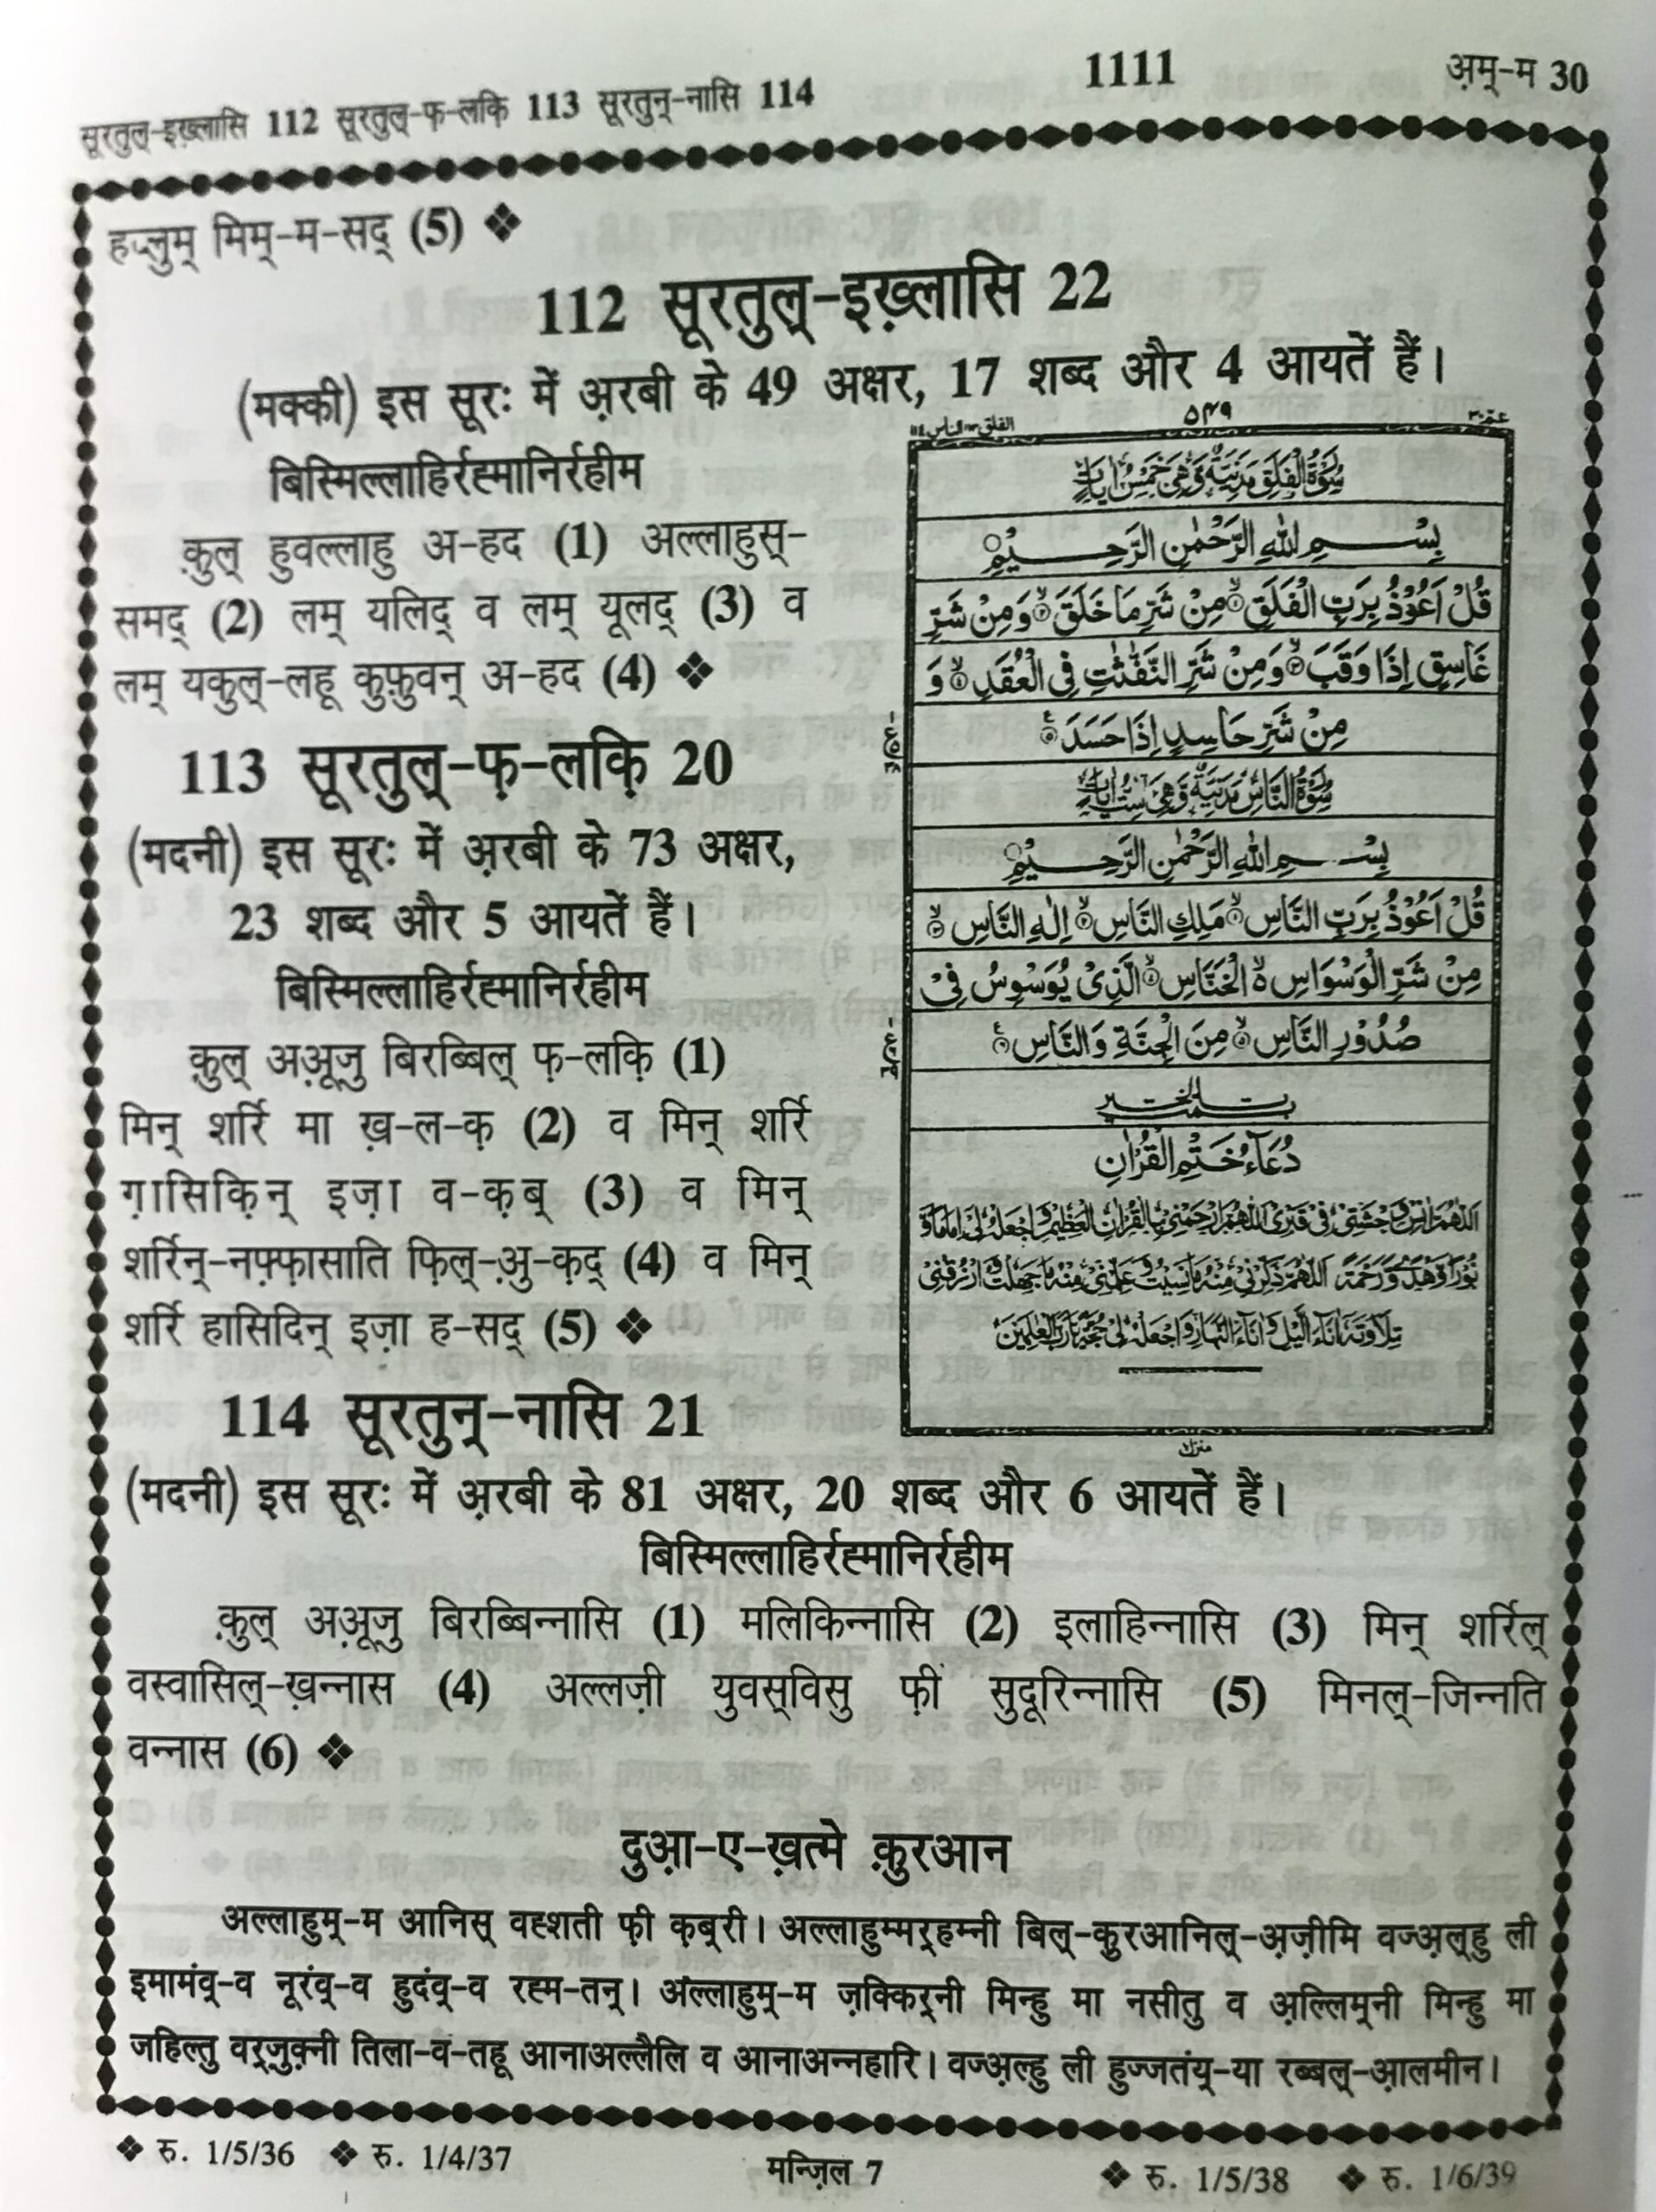 सूरतुल्-इख़्लासि 112 सूरतुल्-फ़-लक़ि 113 सूरतुन्-नासि 114
1111
अ़म्-म 30
हप्लुम् मिम्-म-सद् (5) ❖
112 सूरतुल्-इख़्लासि 22
(मक्की) इस सूरः में अ़रबी के 49 अक्षर, 17 शब्द और 4 आयतें हैं।
बिस्मिल्लाहिर्रह्मानिर्रहीम
क़ुल् हुवल्लाहु अ-हद (1) अल्लाहुस्-
समद् (2) लम् यलिद् व लम् यूलद् (3) व
लम् यकुल्-लहू कुफ़ुवन् अ-हद (4) ❖
113 सूरतुल्-फ़-लक़ि 20
(मदनी) इस सूरः में अ़रबी के 73 अक्षर,
23 शब्द और 5 आयतें हैं।
बिस्मिल्लाहिर्रह्मानिर्रहीम
क़ुल् अअ़ूजु बिरब्बिल् फ़-लक़ि (1)
मिन् शर्रि मा ख़-ल-क़ (2) व मिन् शर्रि
ग़ासिक़िन् इज़ा व-क़ब् (3) व मिन्
शर्रिन्-नफ़्फ़ासाति फ़िल्-अ़ु-क़द् (4) व मिन्
शर्रि हासिदिन् इज़ा ह-सद् (5) ❖
الفلق ١١٣ الناس ١١٤
٥٤٩
عم ٣٠
سُوْرَةُ الْفَلَقِ مَدَنِيَّةٌ وَّهِيَ خَمْسُ اٰيَاتٍ
بِسْمِ اللّٰهِ الرَّحْمٰنِ الرَّحِيْمِ
قُلْ اَعُوْذُ بِرَبِّ الْفَلَقِ ۙ۱ مِنْ شَرِّ مَا خَلَقَ ۙ۲ وَمِنْ شَرِّ
غَاسِقٍ اِذَا وَقَبَ ۙ۳ وَمِنْ شَرِّ النَّفّٰثٰتِ فِي الْعُقَدِ ۙ۴ وَ
مِنْ شَرِّ حَاسِدٍ اِذَا حَسَدَ ۵
سُوْرَةُ النَّاسِ مَدَنِيَّةٌ وَّهِيَ سِتُّ اٰيَاتٍ
بِسْمِ اللّٰهِ الرَّحْمٰنِ الرَّحِيْمِ
قُلْ اَعُوْذُ بِرَبِّ النَّاسِ ۙ۱ مَلِكِ النَّاسِ ۙ۲ اِلٰهِ النَّاسِ ۙ۳
مِنْ شَرِّ الْوَسْوَاسِ ۙ۵ الْخَنَّاسِ ۙ۴ الَّذِيْ يُوَسْوِسُ فِيْ
صُدُوْرِ النَّاسِ ۙ۵ مِنَ الْجِنَّةِ وَالنَّاسِ ۶
دُعَآءُ خَتْمِ الْقُرْاٰنِ
اَللّٰهُمَّ اٰنِسْ وَحْشَتِيْ فِيْ قَبْرِيْ اَللّٰهُمَّ ارْحَمْنِيْ بِالْقُرْاٰنِ الْعَظِيْمِ وَاجْعَلْهُ لِيْ اِمَامًا وَّ
نُوْرًا وَّهُدًى وَّرَحْمَةً اَللّٰهُمَّ ذَكِّرْنِيْ مِنْهُ مَا نَسِيْتُ وَعَلِّمْنِيْ مِنْهُ مَا جَهِلْتُ وَارْزُقْنِيْ
تِلَاوَتَهٗ اٰنَآءَ الَّيْلِ وَاٰنَآءَ النَّهَارِ وَاجْعَلْهُ لِيْ حُجَّةً يَّا رَبَّ الْعٰلَمِيْنَ
114 सूरतुन्-नासि 21
(मदनी) इस सूरः में अ़रबी के 81 अक्षर, 20 शब्द और 6 आयतें हैं।
बिस्मिल्लाहिर्रह्मानिर्रहीम
क़ुल् अअ़ूजु बिरब्बिन्नासि (1) मलिकिन्नासि (2) इलाहिन्नासि (3) मिन् शर्रिल्
वस्वासिल्-ख़न्नास (4) अल्लज़ी युवस्विसु फ़ी सुदूरिन्नासि (5) मिनल्-जिन्नति
वन्नास (6) ❖
दुआ़-ए-ख़त्मे क़ुरआन
अल्लाहुम्-म आनिस् वह्शती फ़ी क़ब्री। अल्लाहुम्मर्हम्नी बिल्-क़ुरआनिल्-अ़ज़ीमि वज्अ़ल्हु ली
इमामंव्-व नूरंव्-व हुदंव्-व रह्म-तन्। अल्लाहुम्-म ज़क्किर्नी मिन्हु मा नसीतु व अ़ल्लिम्नी मिन्हु मा
जहिल्तु वर्ज़ुक़्नी तिला-व-तहू आनाअल्लैलि व आनाअन्नहारि। वज्अ़ल्हु ली हुज्जतंय्-या रब्बल्-आ़लमीन।
❖ रु. 1/5/36 ❖ रु. 1/4/37
मन्ज़िल 7
❖ रु. 1/5/38 ❖ रु. 1/6/39